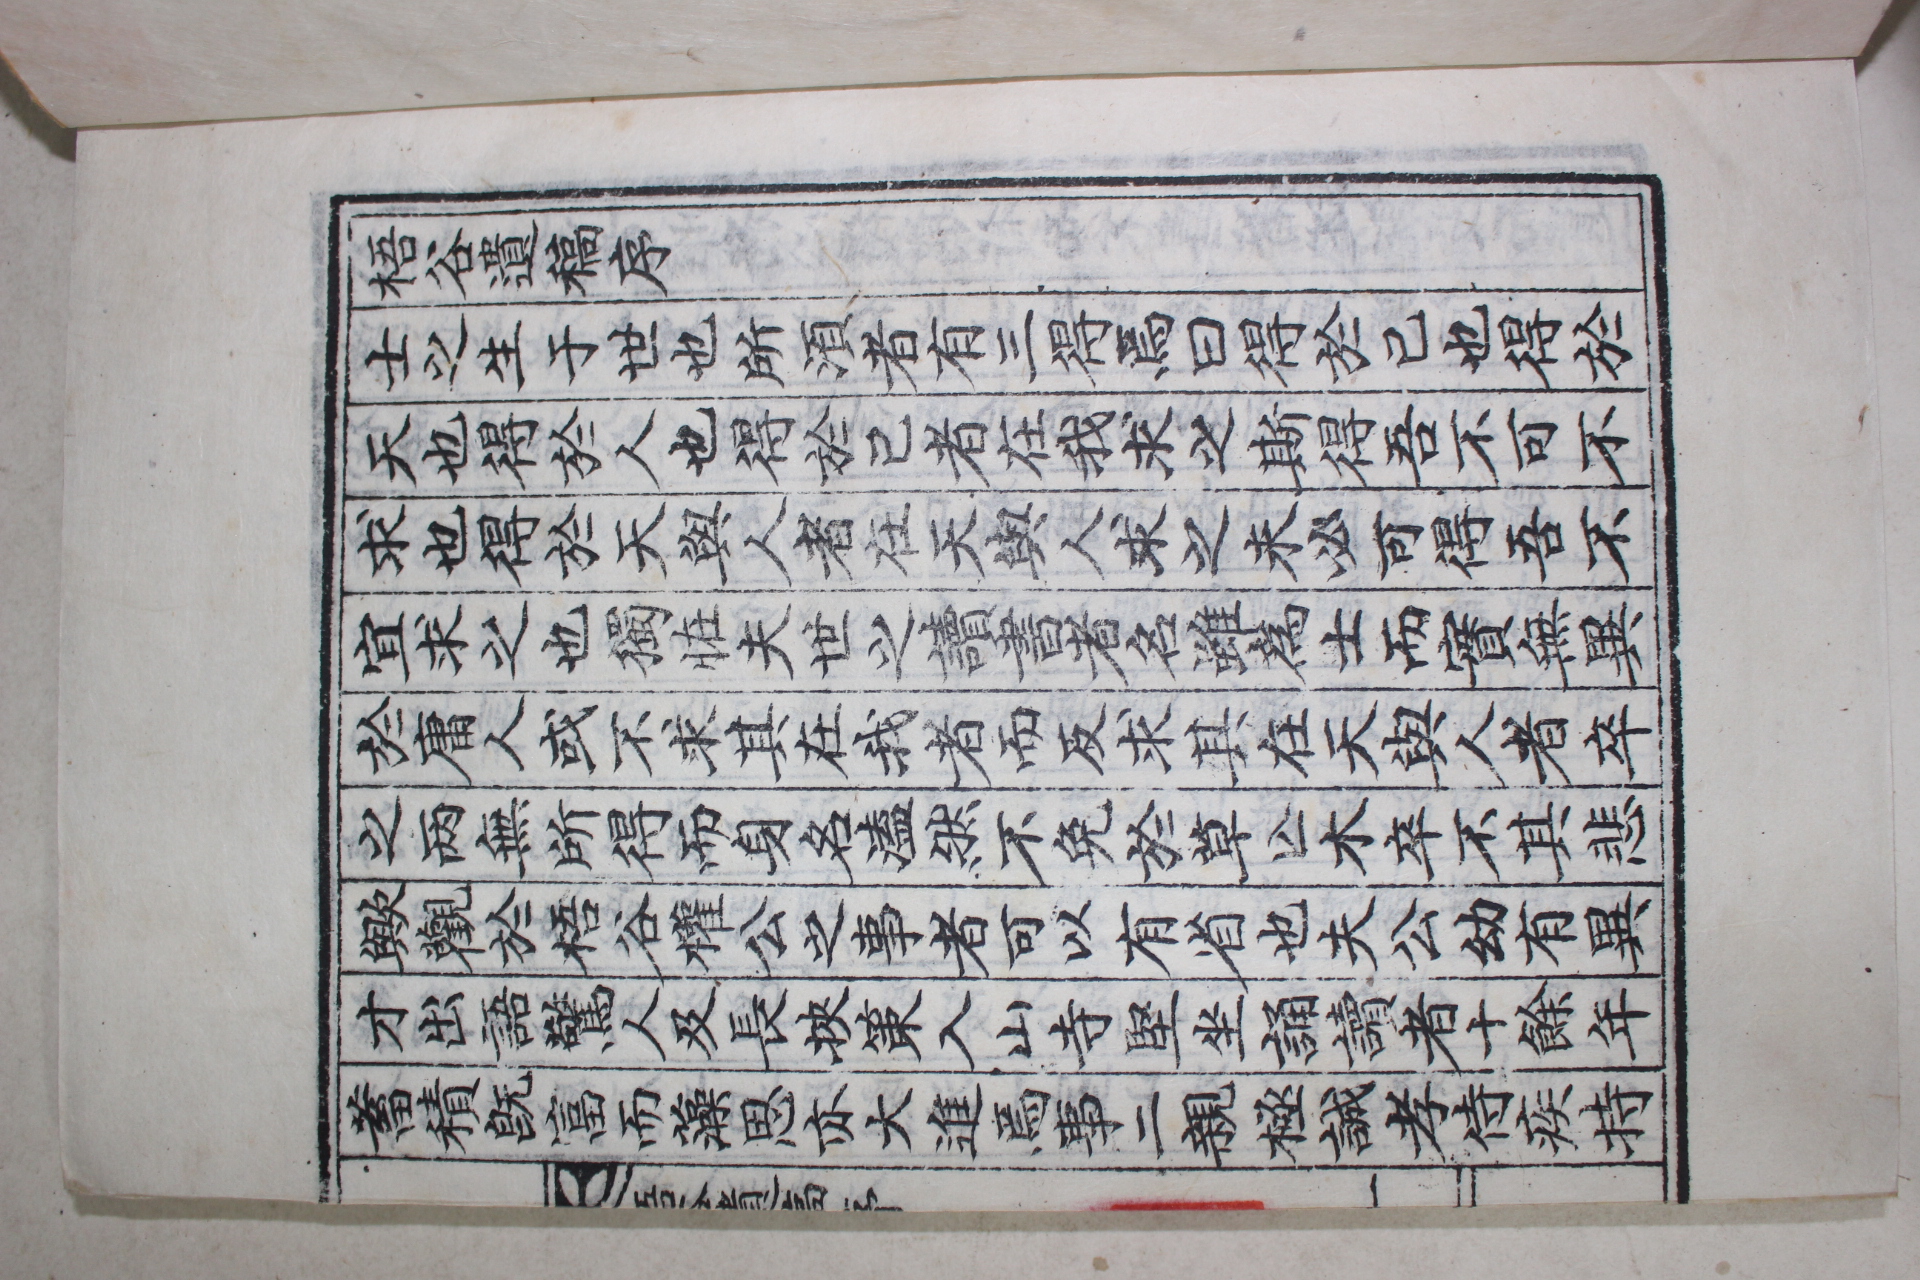 梧谷遺稿序
士之生于世也所湏者有三得焉曰得於己也得於
天也得於人也得於己者在我求之斯得吾不可不
求也得於天與人者在天與人求之未必可得吾不
宜求之也獨恠夫世之讀書者名雖爲士而實無異
於庸人或不求其在我者而反求其在天與人者卒
之两無所得而身名溘然不免於草亡木卒不其悲
歟觀於梧谷權公之事者可以有省也夫公幼有異
才出語驚人及長挾策入山寺堅坐誦讀者十餘年
蓄積旣富而藻思亦大進焉事二親極誠孝侍疾持
梧谷遺稿 序
一